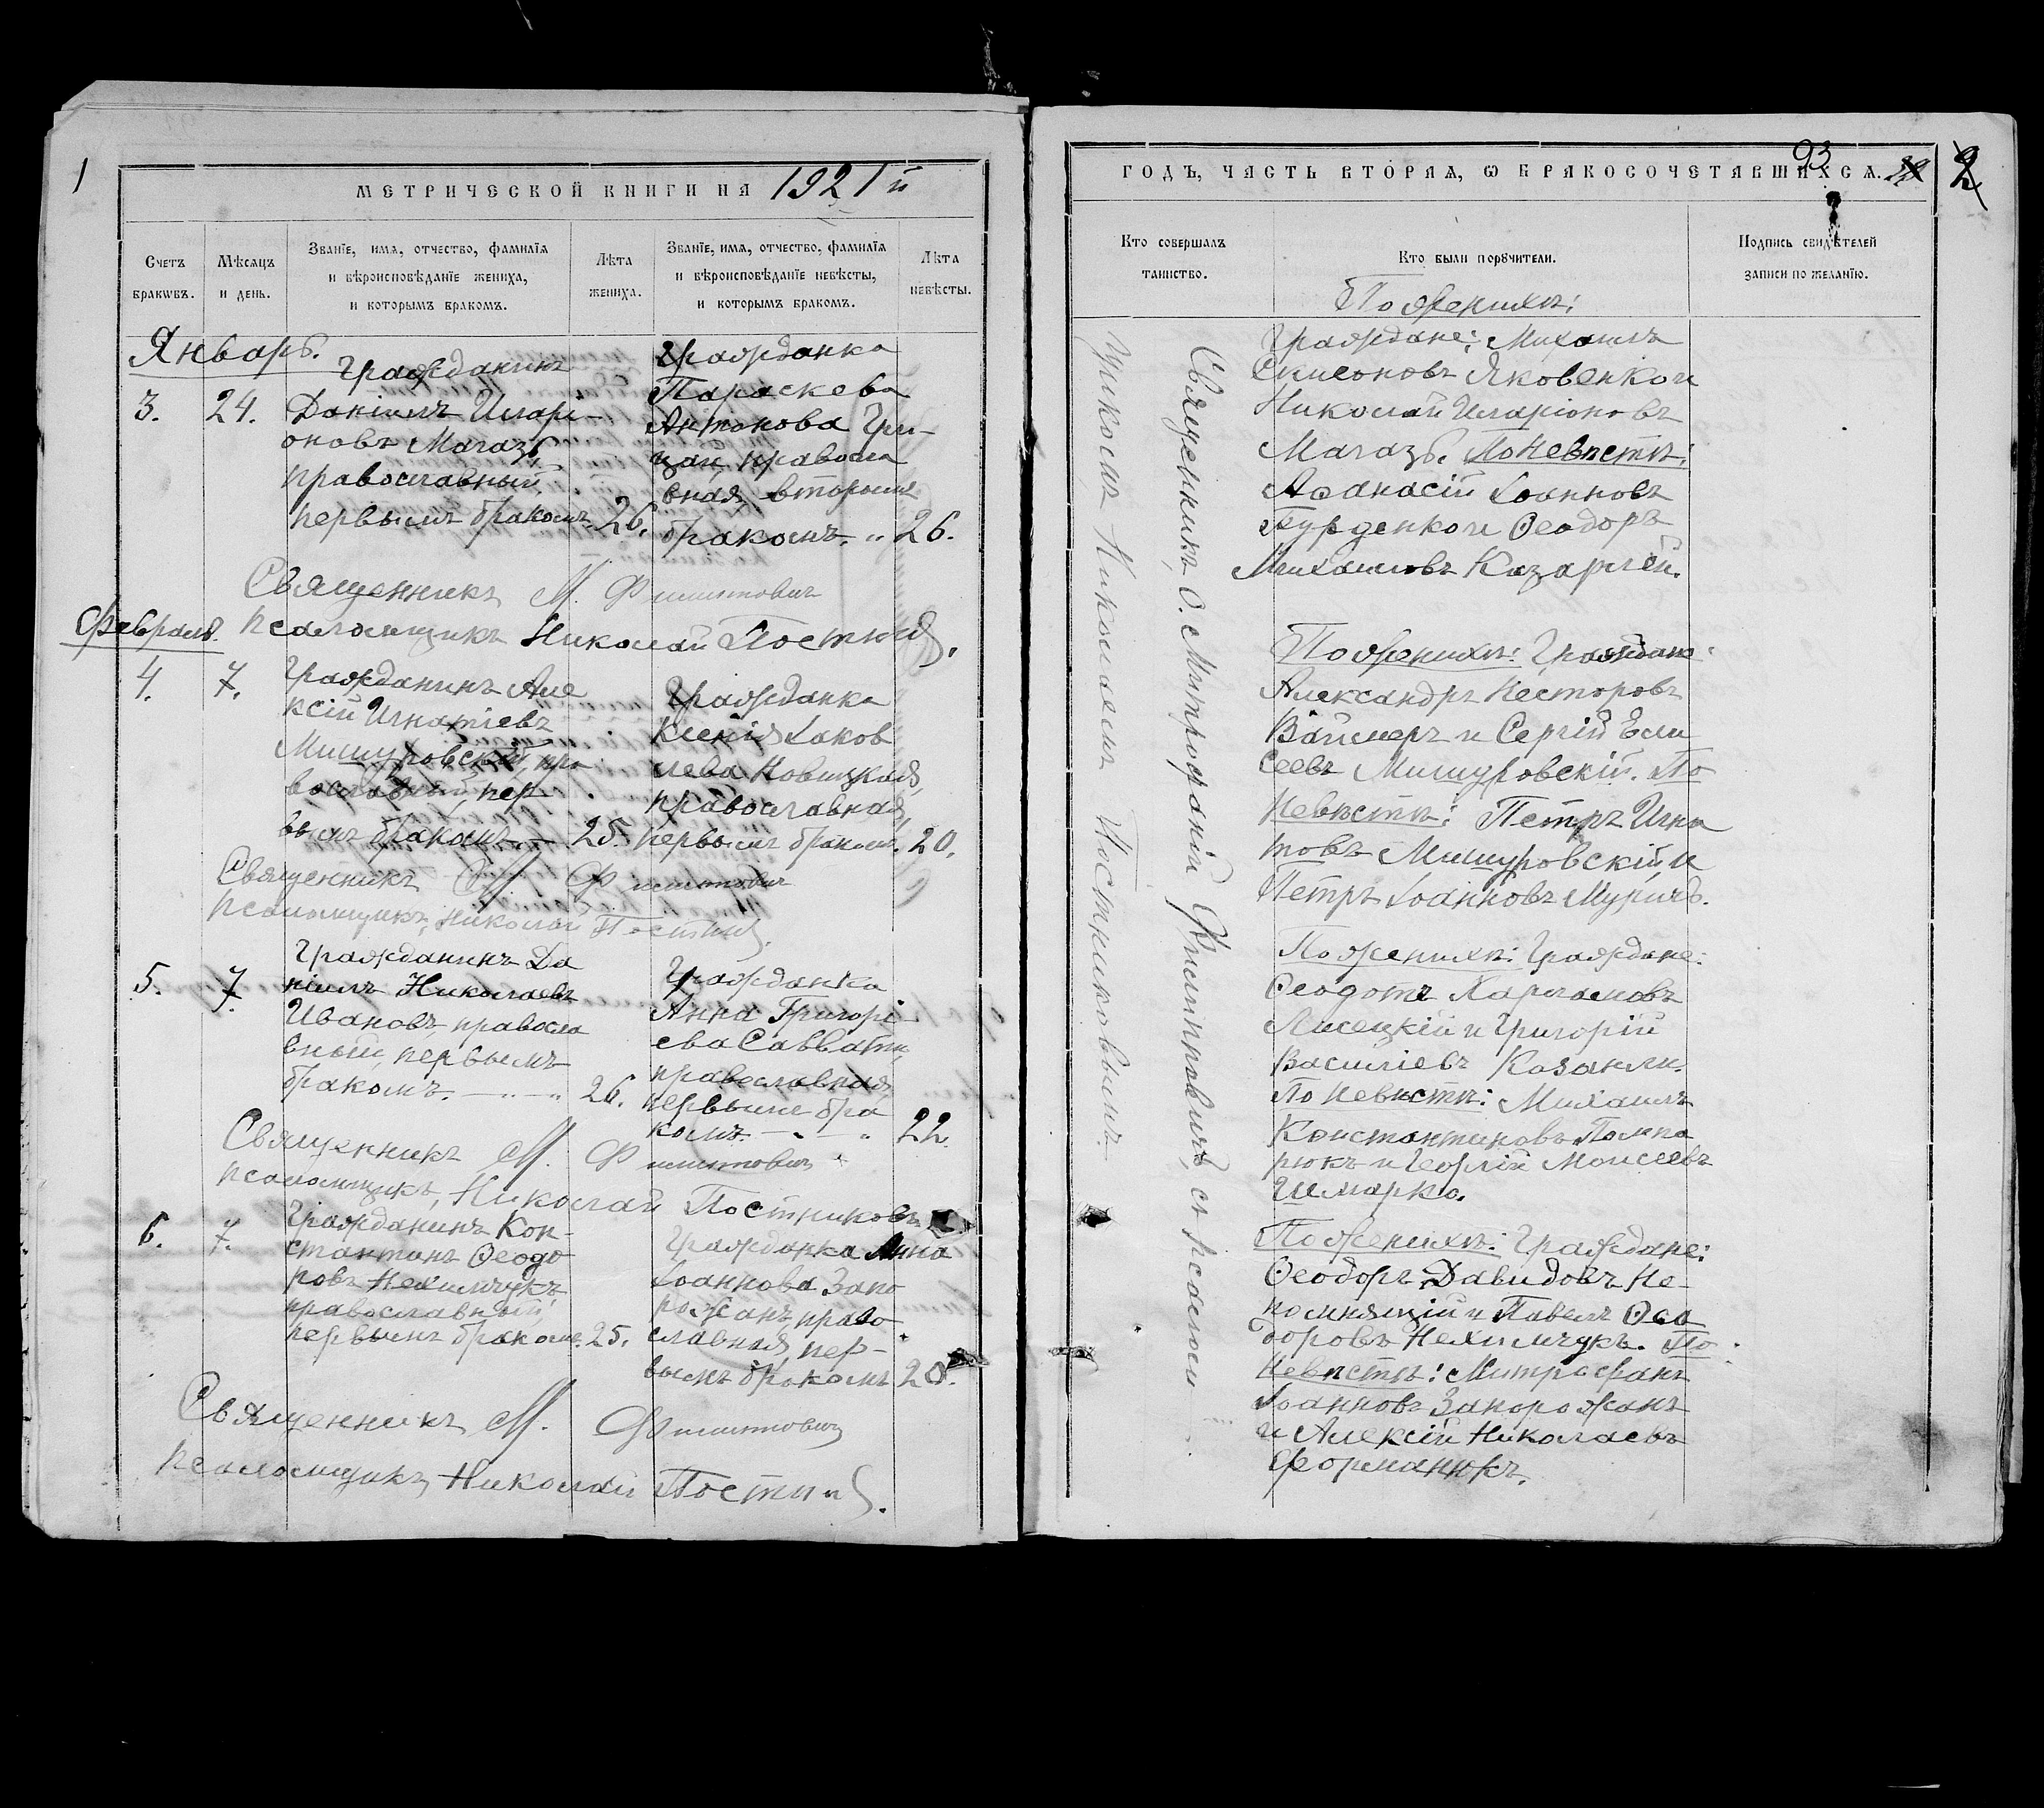 1
МЕТРИЧЕСКОЙ КНИГИ НА 1921 й
Счетъ браковъ.
Мѣсяцъ и день.
Званіе, имя, отчество, фамилія
и вѣроисповѣданіе жениха,
и которымъ бракомъ.
Лѣта
жениха.
Званіе, имя, отчество, фамилія
и вѣроисповѣданіе невѣсты,
и которымъ бракомъ.
Лѣта
невѣсты.
Январь.
3. 24.
Гражданинъ
Даніилъ Иларі-
оновъ Магазь,
православный,
первымъ бракомъ. 26.
Гражданка
Параскева
Антонова Гри-
цай, правосла
вная, вторымъ
бракомъ. 26.
Священникъ М. Филиппович
Псаломщикъ Николай
Февраль.
4. 7.
Гражданинъ Але
ксій Игнатіевъ
Мишуровскій, пра
вославный, пер-
вымъ бракомъ. — 25.
Гражданка
Ксенія Іаков
лева Новицкая,
православная,
первымъ браком. 20.
Священникъ М. Филиппович
Псаломщикъ, Николай
5. 7.
Гражданинъ Да
ніилъ Николаевъ
Ивановъ, правосла
вный, первымъ
бракомъ. — 26.
Гражданка
Анна Григорі-
ева
православная,
первымъ бра
комъ — 22.
Священникъ М. Филиппович
псаломщикъ, Николай Постниковъ
6. 7.
Гражданинъ Кон-
стантинъ Ѳеодо
ровъ Нехимчукъ
православный,
первымъ браком. 25.
Гражданка Анна
Іоаннова Запо
рожанъ, право
славная, пер-
вымъ бракомъ 20.
Священникъ М. Филиппович
Псаломщикъ, Николай
93
2
ГОДЪ, ЧАСТЬ ВТОРАЯ, Ѡ БРАКОСОЧЕТАВШИХСЯ.
Кто совершалъ
таинство.
Кто были поручители.
Подпись свидѣтелей
записи по желанію.
Священникъ, О. Митрофаній Филипповичъ, съ псалом
щикомъ Николаемъ Постниковымъ.
По женихѣ:
Граждане: Михаилъ
Симеоновъ Яковенко и
Николай Иларіоновъ
Магазь. По Невѣстѣ:
Аѳанасій Іоанновъ
Бурденко и Ѳеодоръ
Михаиловъ
По женихѣ: Граждане:
Александръ Несторовъ
и Сергій Ели
сеевъ Мишуровскій. По
Невѣстѣ: Петръ Игна
товъ Мишуровскій и
Петръ Іоанновъ
По женихѣ: Граждане:
Ѳеодотъ
Лисецкій и Григорій
Василіевъ Казанли.
По Невѣстѣ: Михаилъ
Константиновъ
и Георгій Моисеевъ
Шмарко.
По женихѣ: Граждане:
Ѳеодоръ Давидовъ Не-
помнящій и Павелъ Ѳео
доровъ Нехимчукъ. По
Невѣстѣ: Митрофанъ
Іоанновъ Запорожанъ
и Алексій Николаевъ
Форманюкъ.